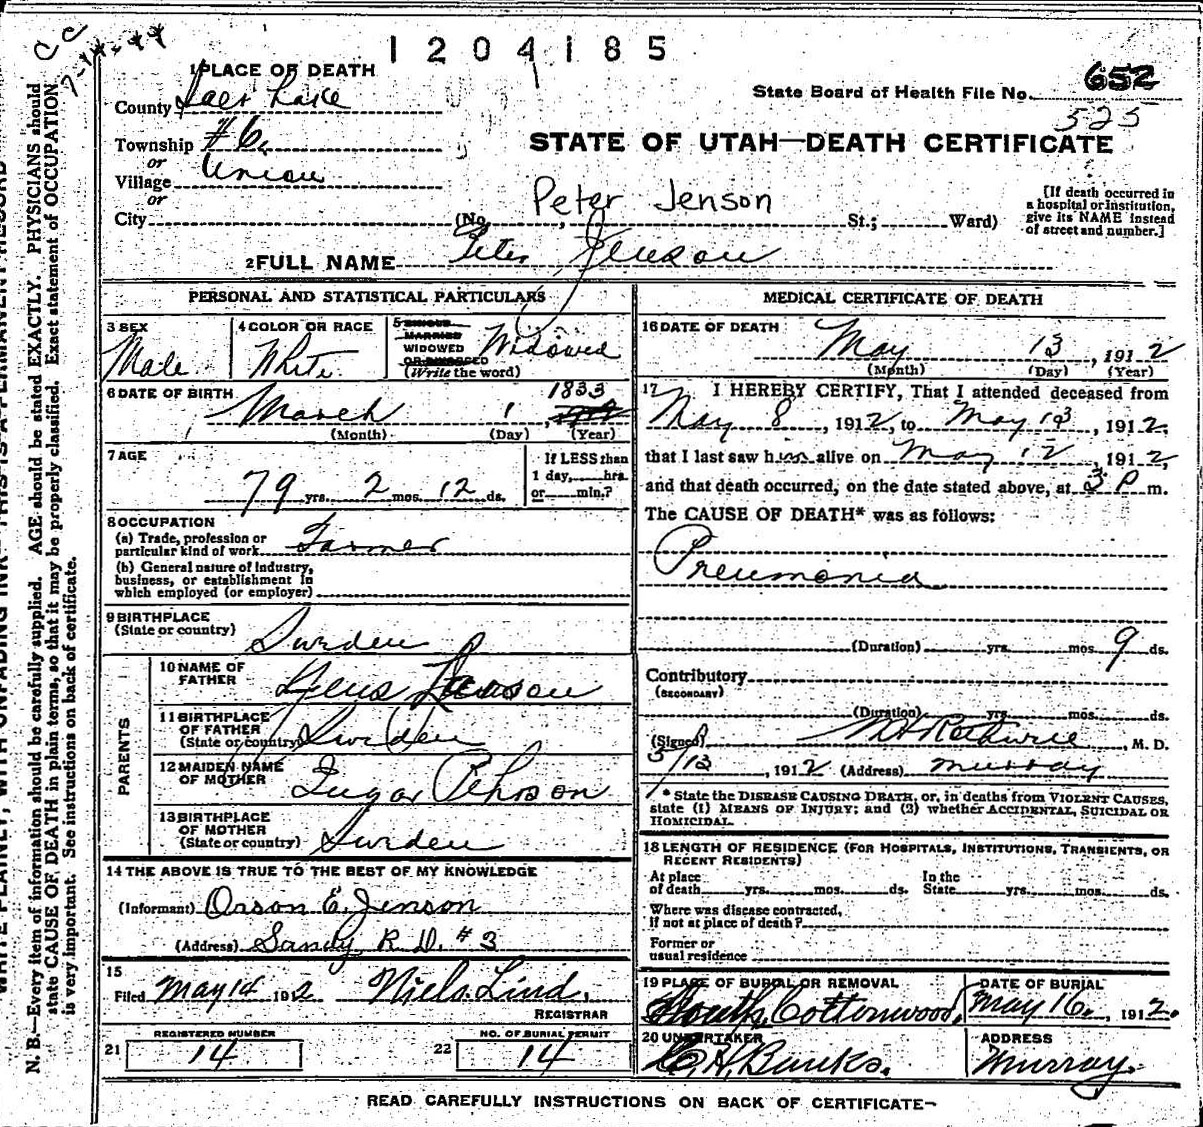 CC
7-14-44
1204185
1 PLACE OF DEATH
County Salt Lake
Township #6
or
Village Union
or
City (No. St.; Ward)
State Board of Health File No. 652
525
STATE OF UTAH—DEATH CERTIFICATE
Peter Jenson
[If death occurred in
a hospital or institution,
give its NAME instead
of street and number.]
2 FULL NAME Peter Jenson
PERSONAL AND STATISTICAL PARTICULARS
3 SEX
Male
4 COLOR OR RACE
White
5 SINGLE
MARRIED
WIDOWED
OR DIVORCED
(Write the word)
Widowed
6 DATE OF BIRTH
March 1, 1833
(Month) (Day) (Year)
7 AGE
79 yrs. 2 mos. 12 ds.
If LESS than
1 day, hrs.
or min.?
8 OCCUPATION
(a) Trade, profession or
particular kind of work Farmer
(b) General nature of industry,
business, or establishment in
which employed (or employer)
9 BIRTHPLACE
(State or country) Sweden
PARENTS
10 NAME OF
FATHER Jens
11 BIRTHPLACE
OF FATHER
(State or country) Sweden
12 MAIDEN NAME
OF MOTHER Ingar Pehrson
13 BIRTHPLACE
OF MOTHER
(State or country) Sweden
14 THE ABOVE IS TRUE TO THE BEST OF MY KNOWLEDGE
(Informant) Orson E. Jenson
(Address) Sandy R.D. #3
15
Filed May 14 1912 Niels Lind,
REGISTRAR
REGISTERED NUMBER
21 14
NO. OF BURIAL PERMIT
22 14
MEDICAL CERTIFICATE OF DEATH
16 DATE OF DEATH
May 13, 1912
(Month) (Day) (Year)
17 I HEREBY CERTIFY, That I attended deceased from
May 8, 1912, to May 13, 1912,
that I last saw him alive on May 12, 1912,
and that death occurred, on the date stated above, at 3 P m.
The CAUSE OF DEATH* was as follows:
Pneumonia
(Duration) yrs. mos. 9 ds.
Contributory
(SECONDARY)
(Duration) yrs. mos. ds.
(Signed) , M. D.
5/13, 1912 (Address) Murray
* State the DISEASE CAUSING DEATH, or, in deaths from VIOLENT CAUSES,
state (1) MEANS OF INJURY; and (2) whether ACCIDENTAL, SUICIDAL OR
HOMICIDAL.
18 LENGTH OF RESIDENCE (FOR HOSPITALS, INSTITUTIONS, TRANSIENTS, OR
RECENT RESIDENTS)
At place
of death yrs. mos. ds.
In the
State yrs. mos. ds.
Where was disease contracted,
if not at place of death?
Former or
usual residence
19 PLACE OF BURIAL OR REMOVAL
South Cottonwood
DATE OF BURIAL
May 16, 1912.
20 UNDERTAKER
Banks.
ADDRESS
Murray.
READ CAREFULLY INSTRUCTIONS ON BACK OF CERTIFICATE—
WRITE PLAINLY, WITH UNFADING INK—THIS IS A PERMANENT RECORD
N. B.—Every item of information should be carefully supplied. AGE should be stated EXACTLY. PHYSICIANS should
state CAUSE OF DEATH in plain terms, so that it may be properly classified. Exact statement of OCCUPATION
is very important. See instructions on back of certificate.